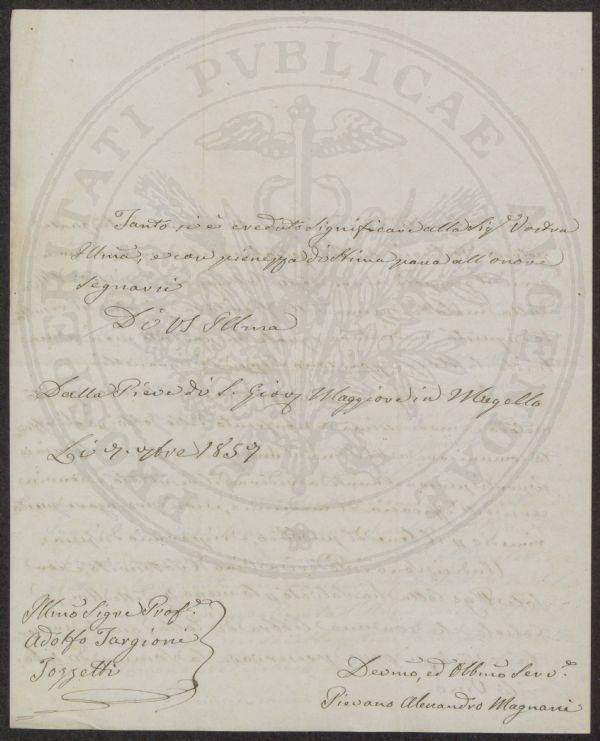 PROSPERITATI PVBLICAE AVGENDAE
Tanto si è creduto significare alla Sig.ª Vostra
Illma, e con pienezza di stima passa all'onore
segnarsi
Di VS Illma
Dalla Pieve di S. Giov Maggiore in Mugello
Li 7. 7bre 1857
Illmo Sigre Prof.e
Adolfo Targioni
Tozzetti
Devmo, ed Obbmo Serv.e
Pievano Alessandro Magnani